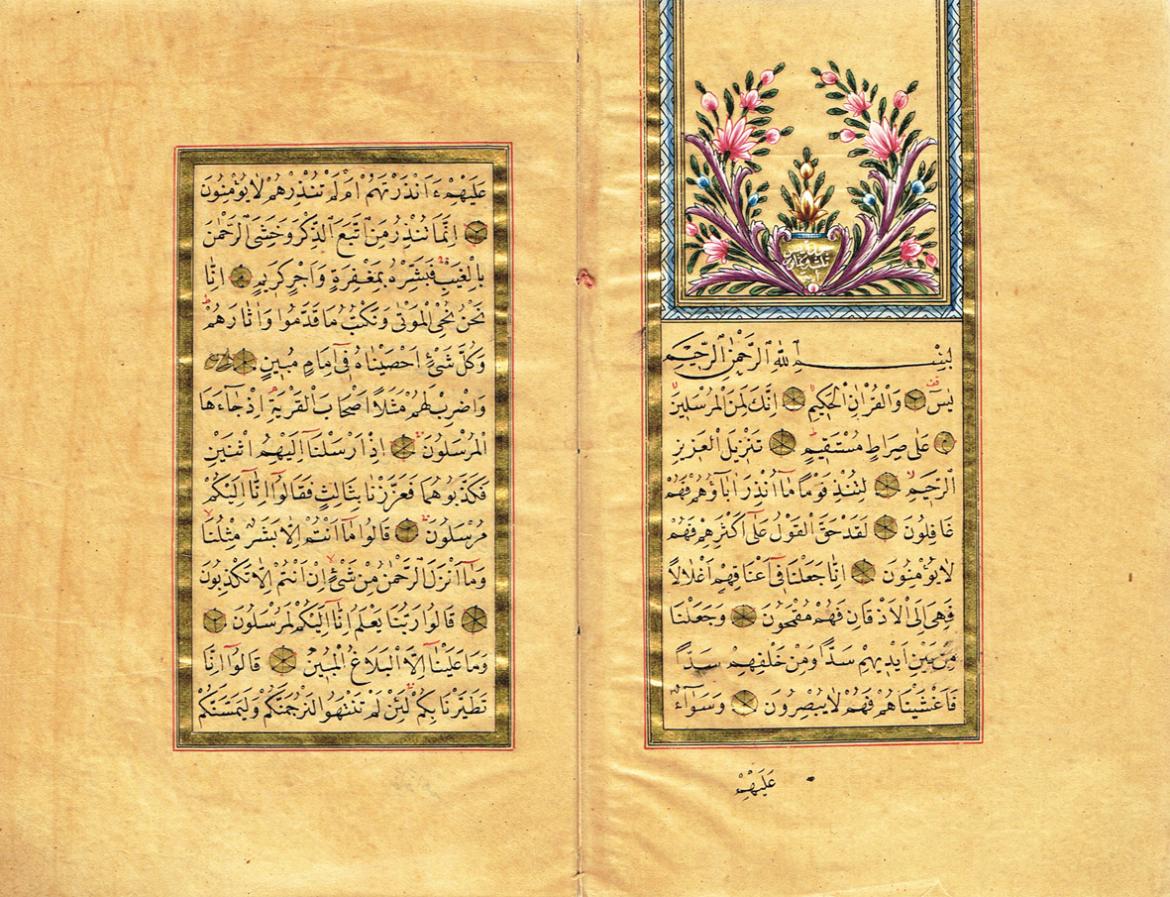 بِسْمِ اللهِ الرَّحْمٰنِ الرَّحِيمِ
يٰسٓ وَالْقُرْاٰنِ الْحَكِيمِ اِنَّكَ لَمِنَ الْمُرْسَلِينَ
عَلٰى صِرَاطٍ مُسْتَقِيمٍ تَنْزِيلَ الْعَزِيزِ
الرَّحِيمِ لِتُنْذِرَ قَوْمًا مَٓا اُنْذِرَ اٰبَٓاؤُهُمْ فَهُمْ
غَافِلُونَ لَقَدْ حَقَّ الْقَوْلُ عَلٰٓى اَكْثَرِهِمْ فَهُمْ
لَا يُؤْمِنُونَ اِنَّا جَعَلْنَا فِٓى اَعْنَاقِهِمْ اَغْلَالًا
فَهِىَ اِلَى الْاَذْقَانِ فَهُمْ مُقْمَحُونَ وَجَعَلْنَا
مِنْ بَيْنِ اَيْدِيهِمْ سَدًّا وَمِنْ خَلْفِهِمْ سَدًّا
فَاَغْشَيْنَاهُمْ فَهُمْ لَا يُبْصِرُونَ وَسَوَٓاءٌ
عَلَيْهِمْ
عَلَيْهِمْ ءَاَنْذَرْتَهُمْ اَمْ لَمْ تُنْذِرْهُمْ لَا يُؤْمِنُونَ
اِنَّمَا تُنْذِرُ مَنِ اتَّبَعَ الذِّكْرَ وَخَشِىَ الرَّحْمٰنَ
بِالْغَيْبِ فَبَشِّرْهُ بِمَغْفِرَةٍ وَاَجْرٍ كَرِيمٍ اِنَّا
نَحْنُ نُحْىِ الْمَوْتٰى وَنَكْتُبُ مَا قَدَّمُوا وَاٰثَارَهُمْ
وَكُلَّ شَىْءٍ اَحْصَيْنَاهُ فِٓى اِمَامٍ مُبِينٍ
وَاضْرِبْ لَهُمْ مَثَلًا اَصْحَابَ الْقَرْيَةِ اِذْ جَٓاءَهَا
الْمُرْسَلُونَ اِذْ اَرْسَلْنَٓا اِلَيْهِمُ اثْنَيْنِ
فَكَذَّبُوهُمَا فَعَزَّزْنَا بِثَالِثٍ فَقَالُٓوا اِنَّٓا اِلَيْكُمْ
مُرْسَلُونَ قَالُوا مَٓا اَنْتُمْ اِلَّا بَشَرٌ مِثْلُنَا
وَمَٓا اَنْزَلَ الرَّحْمٰنُ مِنْ شَىْءٍ اِنْ اَنْتُمْ اِلَّا تَكْذِبُونَ
قَالُوا رَبُّنَا يَعْلَمُ اِنَّٓا اِلَيْكُمْ لَمُرْسَلُونَ
وَمَا عَلَيْنَٓا اِلَّا الْبَلَاغُ الْمُبِينُ قَالُٓوا اِنَّا
تَطَيَّرْنَا بِكُمْ لَئِنْ لَمْ تَنْتَهُوا لَنَرْجُمَنَّكُمْ وَلَيَمَسَّنَّكُمْ